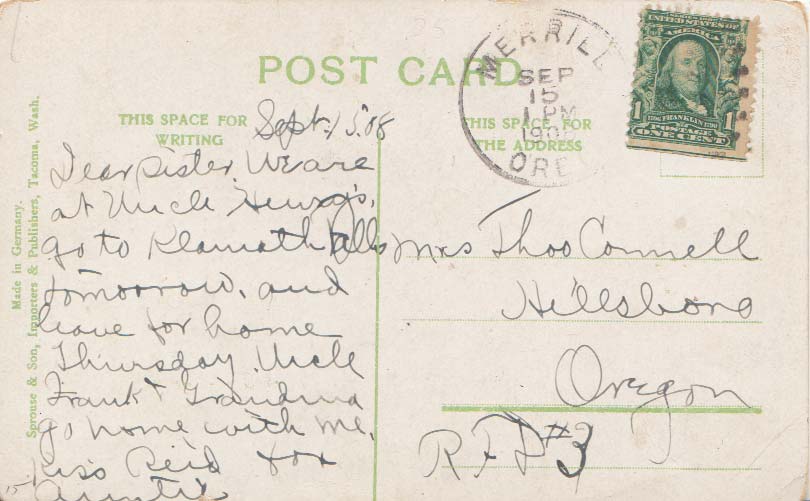 POST CARD
THIS SPACE FOR
WRITING
THIS SPACE FOR
THE ADDRESS
MERRILL
SEP
15
1 PM
1908
ORE
UNITED STATES OF
AMERICA
1 FRANKLIN 1
POSTAGE
ONE CENT
Made in Germany.
Sprouse & Son, Importers & Publishers, Tacoma, Wash.
Sept. 15, 08
Dear Sister. We are
at Uncle Henry's.
go to Klamath Falls
tomorrow. and
leave for home
Thursday. Uncle
Frank & Grandma
go home with me.
Kiss Reid for
Auntie
Mrs Thos Connell
Hillsboro
Oregon
RFD #3
15